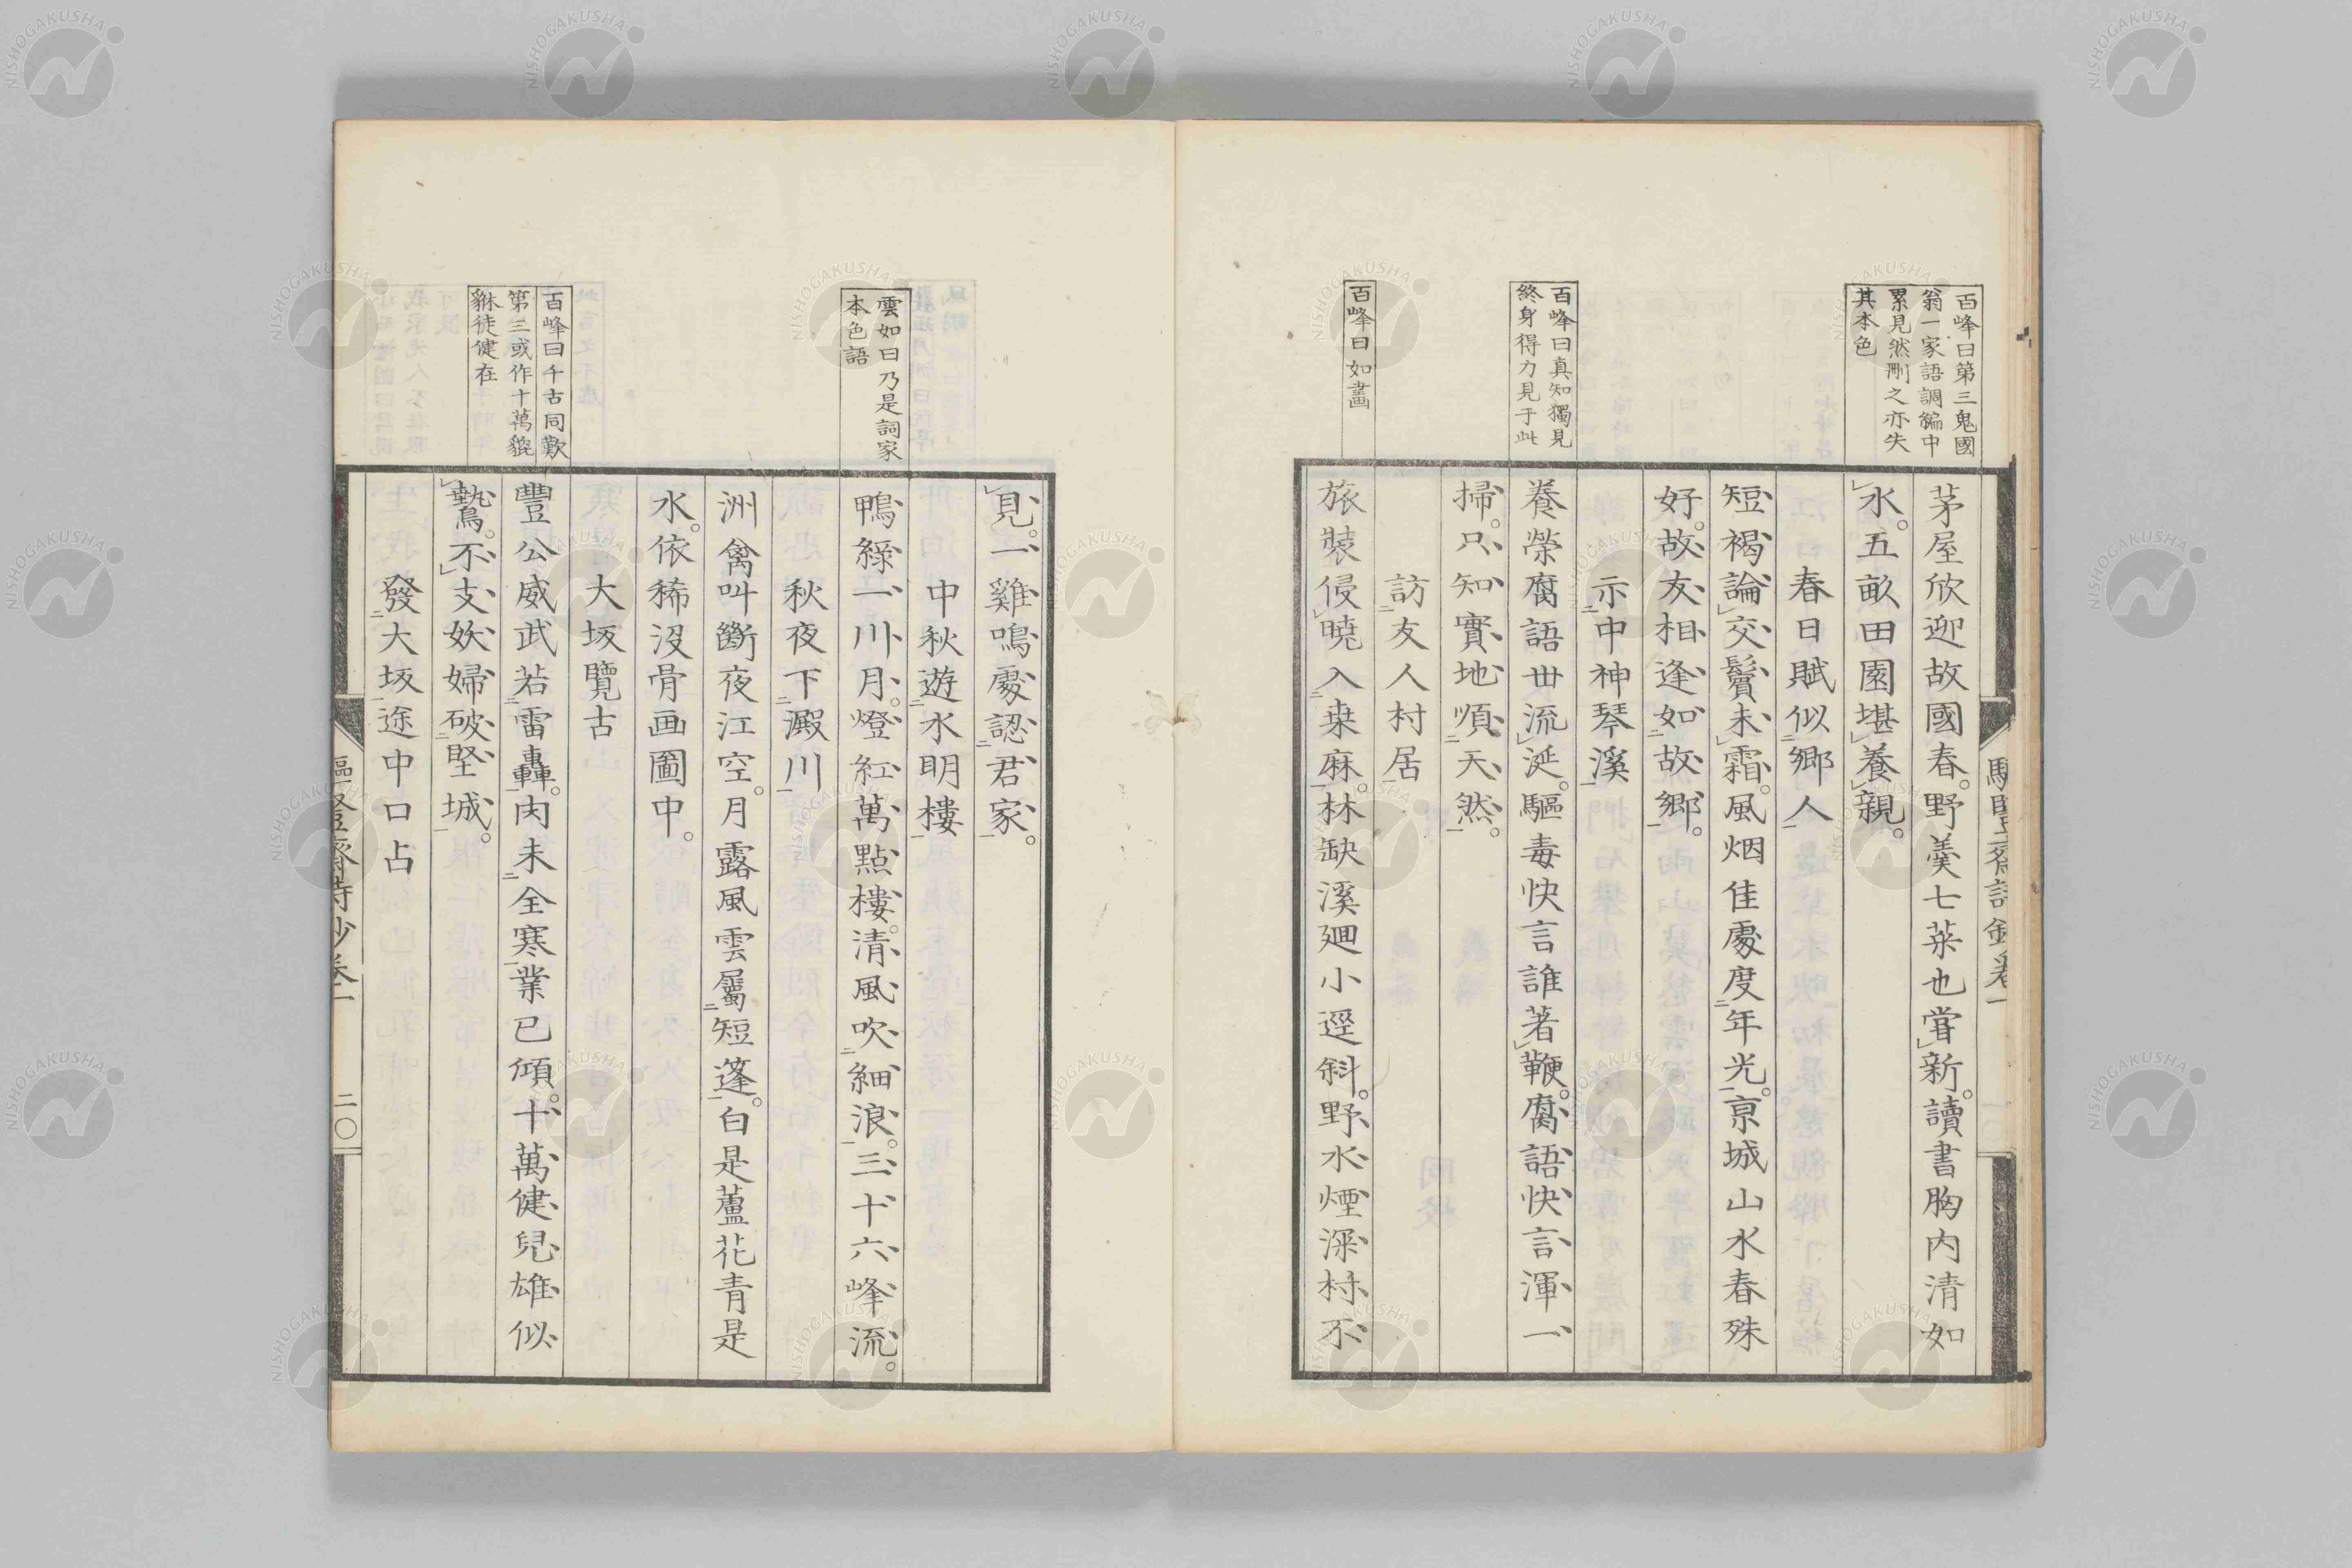 百峰曰第三鬼國
翁一家語調編中
累見然刪之亦失
其本色
百峰曰真知獨見
終身得力見于此
百峰曰如畫
茅屋欣迎故國春。野羹七菜也嘗新。讀書胸内清如
水。五畝田園堪養親。
春日賦似鄉人
短褐論交鬢未霜。風烟佳處度年光。京城山水春殊
好。故友相逢如故鄉。
示中神琴溪
養榮腐語世流涎。驅毒快言誰著鞭。腐語快言渾一
掃。只知實地順天然。
訪友人村居
旅裝侵曉入桒麻。林缺溪廻小逕斜。野水煙深村不
雲如曰乃是詞家
本色語
百峰曰千古同歎
第三或作十萬貔
貅徒健在
見。一雞鳴處認君家。
中秋遊水明樓
鴨綠一川月。燈紅萬點樓。清風吹細浪。三十六峰流。
秋夜下澱川
洲禽叫斷夜江空。月露風雲屬短蓬。白是蘆花青是
水。依稀没骨画圖中。
大坂覽古
豐公威武若雷轟。肉未全寒業已傾。十萬健兒雄似
鷙。不支妖婦破堅城。
發大坂途中口占
驅豎齋詩鈔卷一
二〇
NISHOGAKUSHA